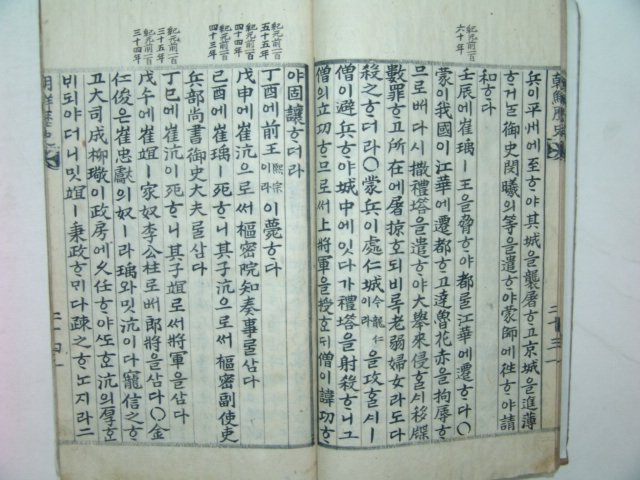 朝鮮歷史
紀元前一百六十年
兵이平州에至ᄒᆞ야其城을襲屠ᄒᆞ고京城을進薄
ᄒᆞ거ᄂᆞᆯ御史閔曦의等을遣ᄒᆞ야蒙師에徃ᄒᆞ야請
和ᄒᆞ다
壬辰에崔瑀ㅣ王을脅ᄒᆞ야都ᄅᆞᆯ江華에遷ᄒᆞ다○
蒙이我國이江華에遷都ᄒᆞ고達魯花赤을拘辱ᄒᆞ
므로ᄡᅥ다시撒禮塔을遣ᄒᆞ야大擧來侵ᄒᆞᆯᄉᆡ移牒
數罪ᄒᆞ고所在에屠掠ᄒᆞ되비록老弱婦女라도다
殺之ᄒᆞ더라○蒙兵이處仁城今龍仁을攻ᄒᆞᆯᄉᆡ一
僧이避兵ᄒᆞ야城中에잇다가禮塔을射殺ᄒᆞ니그
僧의立功ᄒᆞ므로ᄡᅥ上將軍을授ᄒᆞᆫᄃᆡ僧이諱功ᄒᆞ
二十三
紀元前一百五十五年
紀元前一百四十四年
紀元前一百四十三年
紀元前一百三十五年
紀元前一百三十四年
야固讓ᄒᆞ더라
丁酉에前王熙宗이라이薨ᄒᆞ다
戊申에崔沆으로ᄡᅥ樞密院知奏事ᄅᆞᆯ삼다
己酉에崔瑀ㅣ死ᄒᆞ니其子沆으로ᄡᅥ樞密副使吏
兵部尙書御史大夫ᄅᆞᆯ삼다
丁巳에崔沆이死ᄒᆞ니其子竩로ᄡᅥ將軍을삼다
戊午에崔竩ㅣ家奴李公柱로ᄡᅥ郞將을삼다○金
仁俊은崔忠獻의奴ㅣ라瑀와밋沆이다寵信ᄒᆞ
고大司成柳璥이政房에久任ᄒᆞ야ᄯᅩᄒᆞᆫ沆의厚ᄒᆞᆫ
ᄇᆡ되야더니밋竩ㅣ秉政ᄒᆞᄆᆡ다疎之ᄒᆞᄂᆞ지라二
二十四